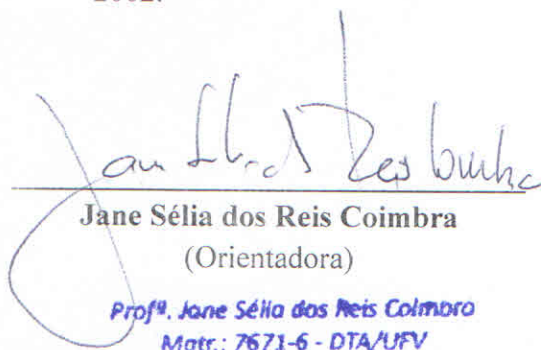 2002.
Jane Sélia dos Reis Coimbra
(Orientadora)
Profª. Jane Sélia dos Reis Coimbra
Matr.: 7671-6 - DTA/UFV